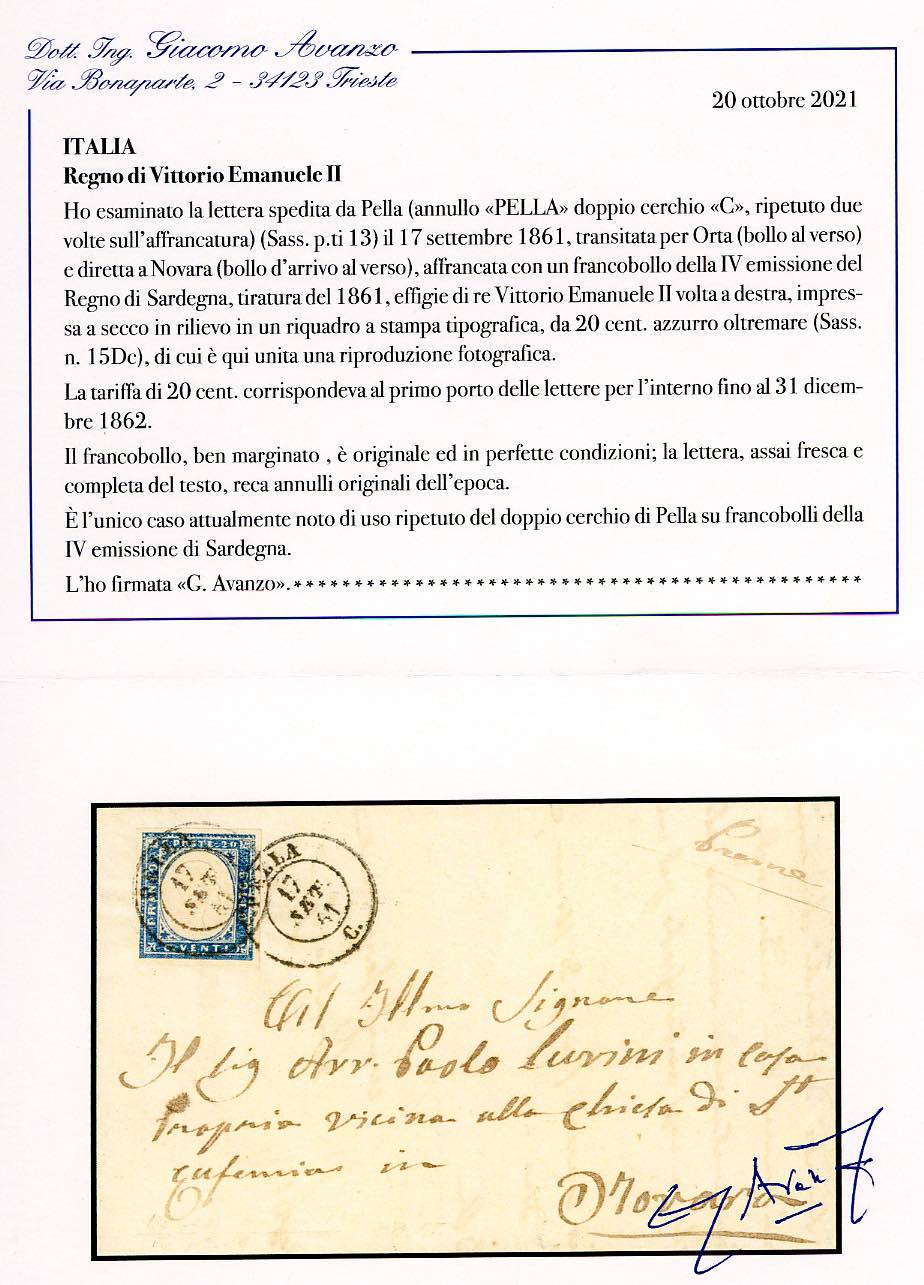 Dott. Ing. Giacomo Avanzo
Via Bonaparte, 2 – 34123 Trieste
20 ottobre 2021
ITALIA
Regno di Vittorio Emanuele II
Ho esaminato la lettera spedita da Pella (annullo «PELLA» doppio cerchio «C», ripetuto due
volte sull'affrancatura) (Sass. p.ti 13) il 17 settembre 1861, transitata per Orta (bollo al verso)
e diretta a Novara (bollo d'arrivo al verso), affrancata con un francobollo della IV emissione del
Regno di Sardegna, tiratura del 1861, effigie di re Vittorio Emanuele II volta a destra, impres-
sa a secco in rilievo in un riquadro a stampa tipografica, da 20 cent. azzurro oltremare (Sass.
n. 15Dc), di cui è qui unita una riproduzione fotografica.
La tariffa di 20 cent. corrispondeva al primo porto delle lettere per l'interno fino al 31 dicem-
bre 1862.
Il francobollo, ben marginato , è originale ed in perfette condizioni; la lettera, assai fresca e
completa del testo, reca annulli originali dell'epoca.
È l'unico caso attualmente noto di uso ripetuto del doppio cerchio di Pella su francobolli della
IV emissione di Sardegna.
L'ho firmata «G. Avanzo».***********************************************
PELLA
17
SET
61
C.
C. VENTI
All Illmo Signore
Il sig Avv. Paolo in casa
propria vicina alla chiesa di St
eufemia in
Novara